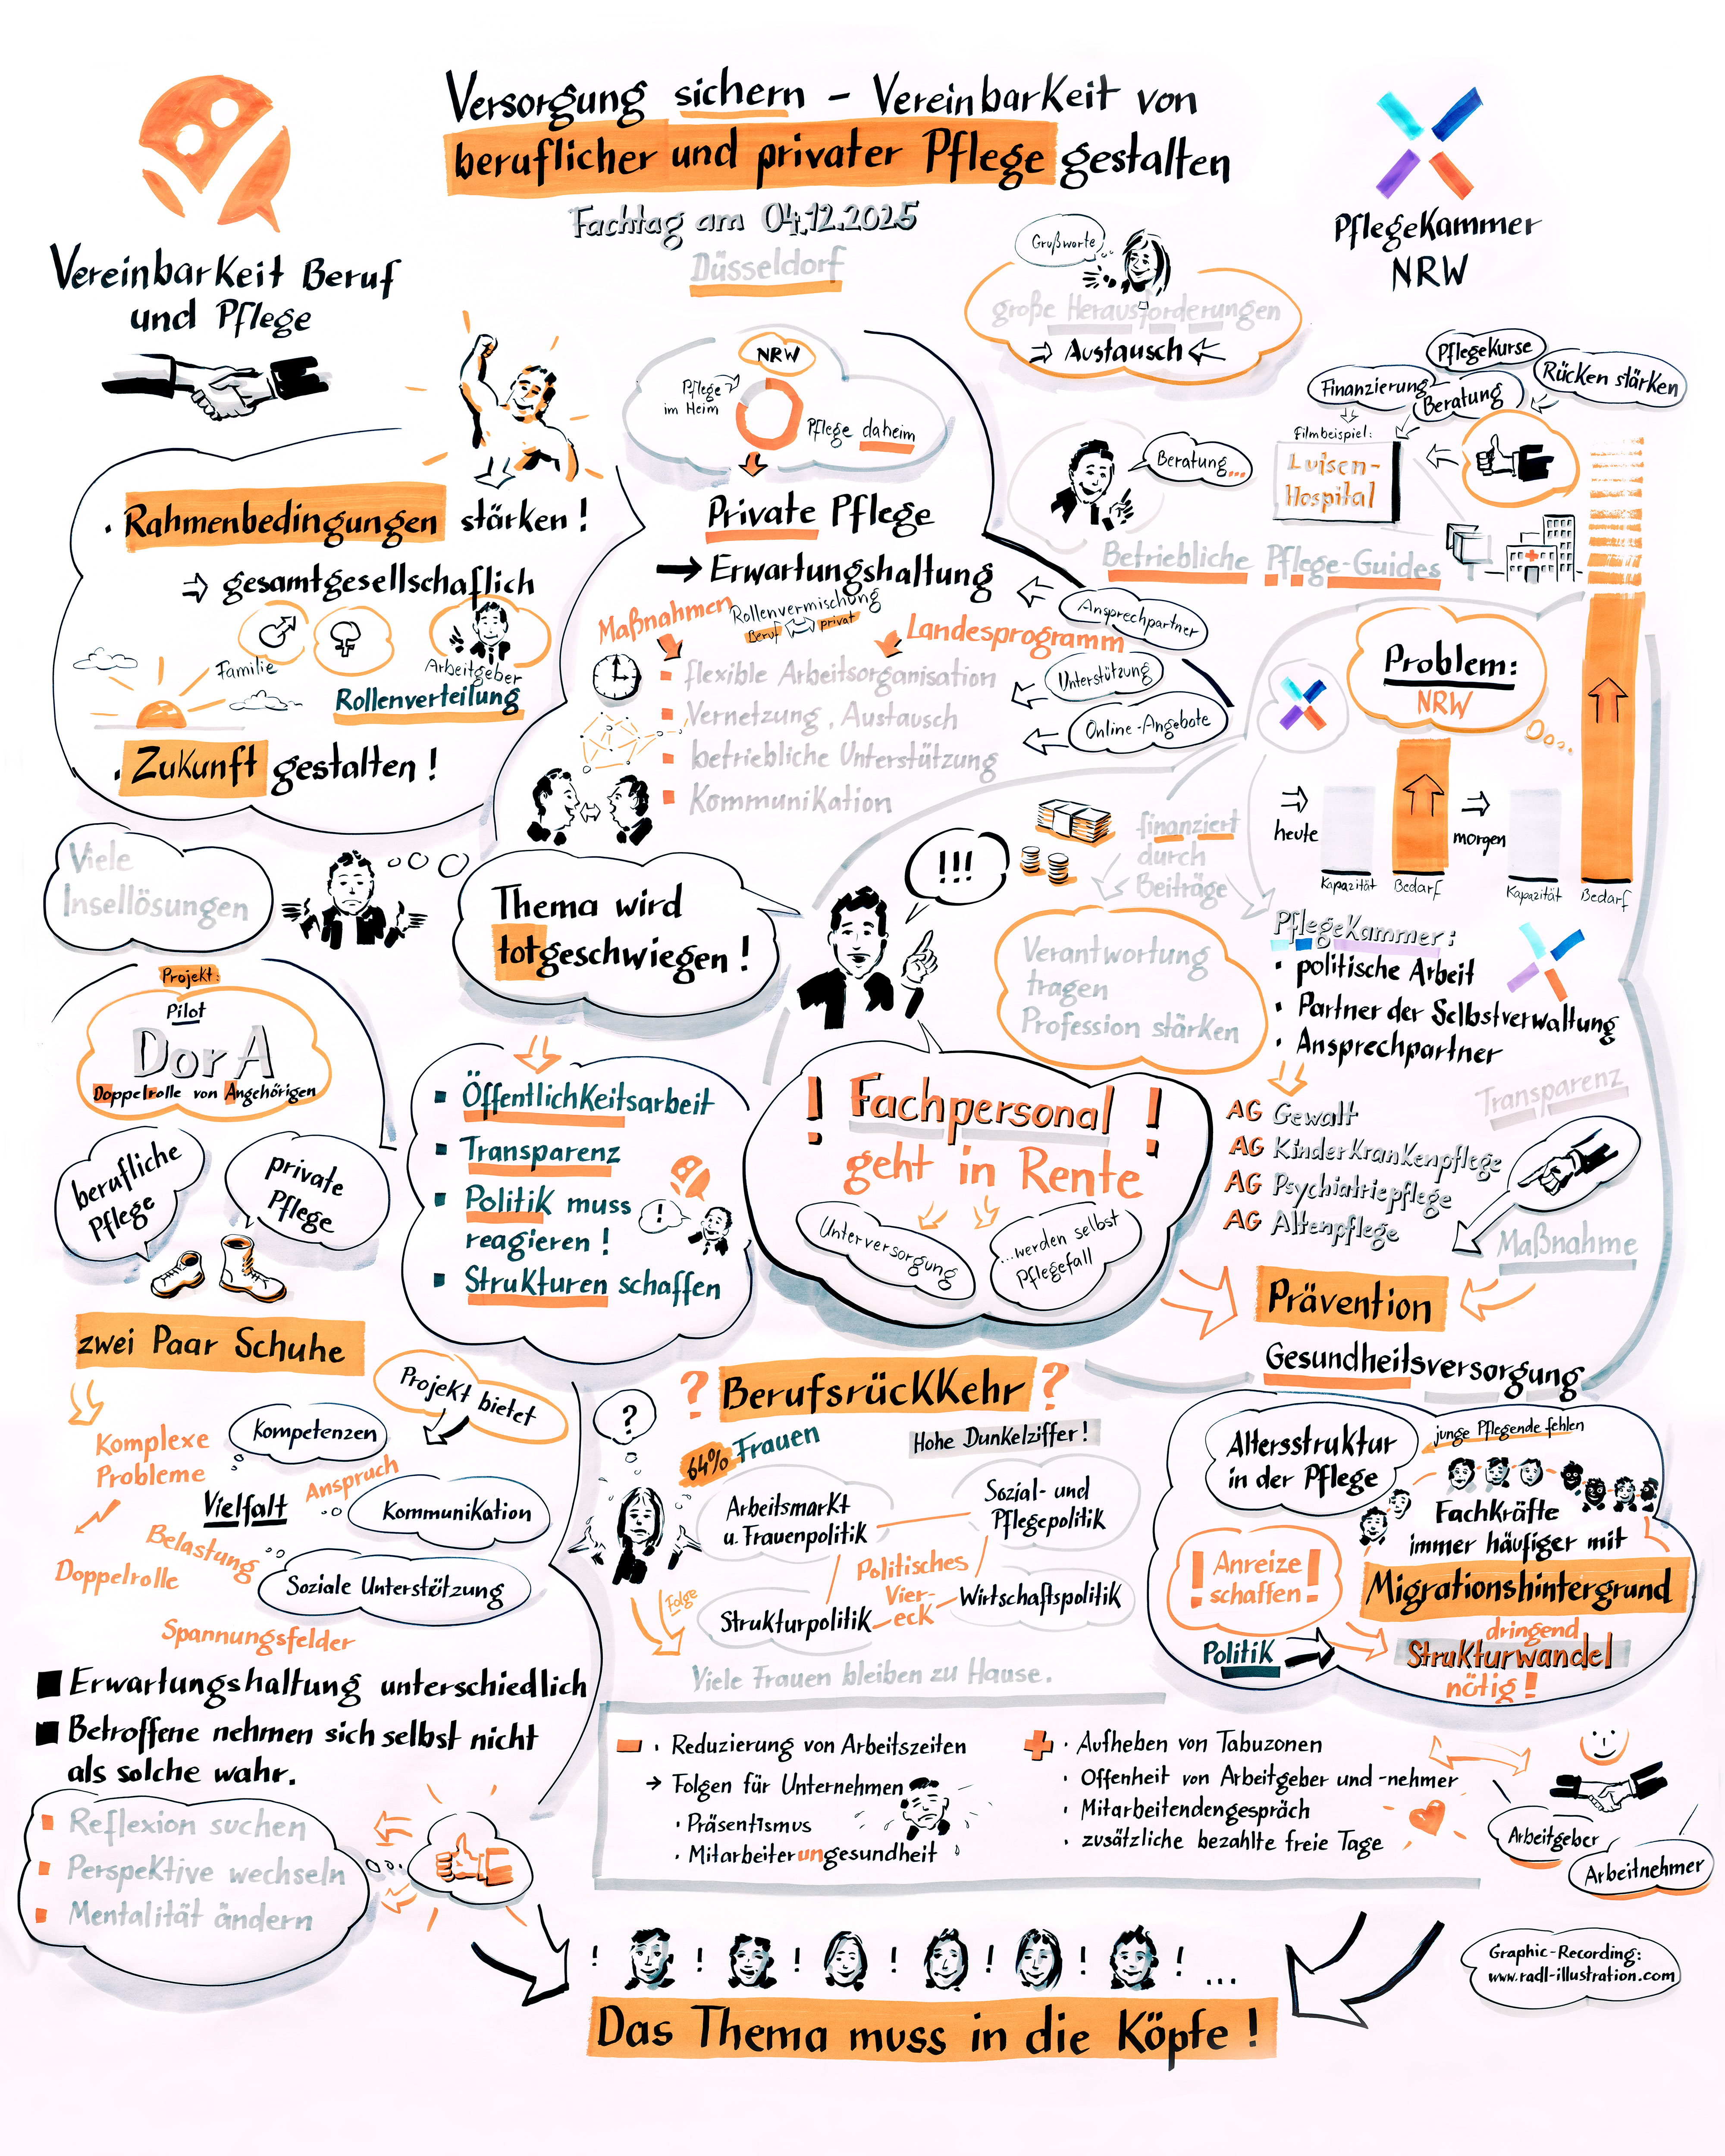 Versorgung sichern – Vereinbarkeit von
beruflicher und privater Pflege gestalten
Fachtag am 04.12.2025
Düsseldorf
Vereinbarkeit Beruf
und Pflege
PflegeKammer
NRW
Grußworte
große Herausforderungen
⇒ Austausch ⇐
NRW
Pflege
im Heim
Pflege daheim
Private Pflege
→ Erwartungshaltung
Maßnahmen
Rollenvermischung
Beruf ⇔ privat
Landesprogramm
flexible Arbeitsorganisation
Vernetzung, Austausch
betriebliche Unterstützung
Kommunikation
Ansprechpartner
Unterstützung
Online-Angebote
Beratung...
Finanzierung
PflegeKurse
Beratung
Rücken stärken
Filmbeispiel:
Luisen-
Hospital
Betriebliche Pflege-Guides
· Rahmenbedingungen stärken!
⇒ gesamtgesellschaftlich
Familie
Arbeitgeber
Rollenverteilung
· Zukunft gestalten!
Problem:
NRW
heute
Kapazität
Bedarf
morgen
Kapazität
Bedarf
Viele
Insellösungen
Thema wird
totgeschwiegen!
!!!
finanziert
durch
Beiträge
Verantwortung
tragen
Profession stärken
PflegeKammer:
· politische Arbeit
· Partner der Selbstverwaltung
· Ansprechpartner
AG Gewalt
AG KinderKrankenpflege
AG Psychiatriepflege
AG Altenpflege
Transparenz
Maßnahme
Prävention
Gesundheitsversorgung
Projekt:
Pilot
DorA
Doppelrolle von Angehörigen
berufliche
Pflege
private
Pflege
zwei Paar Schuhe
Öffentlichkeitsarbeit
Transparenz
Politik muss
reagieren!
!
Strukturen schaffen
! Fachpersonal !
geht in Rente
Unterversorgung
...werden selbst
Pflegefall
Projekt bietet
Komplexe
Probleme
Kompetenzen
Anspruch
Vielfalt
Kommunikation
Belastung
Doppelrolle
Soziale Unterstützung
Spannungsfelder
Erwartungshaltung unterschiedlich
Betroffene nehmen sich selbst nicht
als solche wahr.
Reflexion suchen
Perspektive wechseln
Mentalität ändern
? Berufsrückkehr ?
?
64% Frauen
Hohe Dunkelziffer!
Arbeitsmarkt
u. Frauenpolitik
Sozial- und
Pflegepolitik
Politisches
Vier-
eck
Strukturpolitik
Wirtschaftspolitik
Folge
Viele Frauen bleiben zu Hause.
Altersstruktur
in der Pflege
junge Pflegende fehlen
Fachkräfte
immer häufiger mit
Migrationshintergrund
! Anreize !
schaffen
Politik
dringend
Strukturwandel
nötig!
– · Reduzierung von Arbeitszeiten
→ Folgen für Unternehmen
· Präsentismus
· Mitarbeiterungesundheit
+ · Aufheben von Tabuzonen
· Offenheit von Arbeitgeber und -nehmer
· Mitarbeitendengespräch
· zusätzliche bezahlte freie Tage
Arbeitgeber
Arbeitnehmer
! ! ! ! ! ! ! ...
Das Thema muss in die Köpfe!
Graphic-Recording:
www.radl-illustration.com